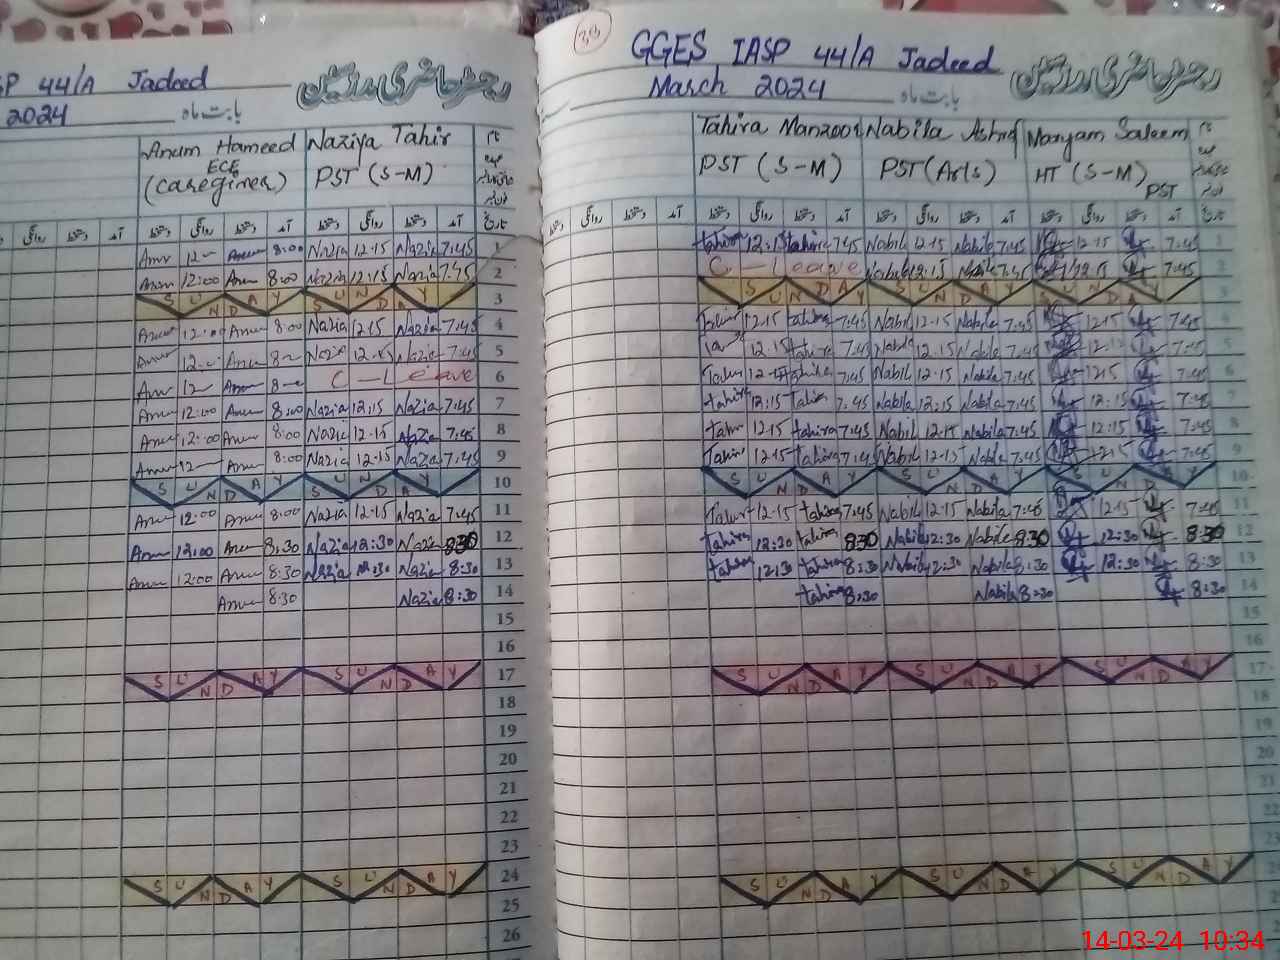 SP 44/A Jadeed
2024
رجسٹر حاضری مدرسین
بابت ماہ
Anum Hameed
ECE
(Caregiver)
Naziya Tahir
PST (S-M)
آمد دستخط روانگی دستخط
1 7:45 Nazia 12:15 Nazia 8:00 Anum 12 Anum
2 7:45 Nazia 12:15 Nazia 8:00 Anum 12:00 Anum
3 SUNDAY SUNDAY
4 7:45 Nazia 12:15 Nazia 8:00 Anum 12:00 Anum
5 7:45 Nazia 12:15 Nazia 8 Anum 12 Anum
6 C-Leave 8 Anum 12 Anum
7 7:45 Nazia 12:15 Nazia 8:00 Anum 12:00 Anum
8 7:45 Nazia 12:15 Nazia 8:00 Anum 12:00 Anum
9 7:45 Nazia 12:15 Nazia 8:00 Anum 12 Anum
10 SUNDAY SUNDAY
11 7:45 Nazia 12:15 Nazia 8:00 Anum 12:00 Anum
12 8:30 Nazia 12:30 Nazia 8:30 Anum 12:00 Anum
13 8:30 Nazia 12:30 Nazia 8:30 Anum 12:00 Anum
14 8:30 Nazia 8:30 Anum
15
16
17 SUNDAY SUNDAY
18
19
20
21
22
23
24 SUNDAY SUNDAY
25
26
38
GGES IASP 44/A Jadeed
March 2024
رجسٹر حاضری مدرسین
بابت ماہ
Tahira Manzoor
PST (S-M)
Nabila Ashraf
PST (Arts)
Maryam Saleem
HT (S-M)
PST
آمد دستخط روانگی دستخط
1 7:45 12:15 7:45 Nabila 12:15 Nabila 7:45 tahira 12:15 tahira
2 7:45 12:15 7:45 Nabila 12:15 Nabila C-Leave
3 SUNDAY SUNDAY SUNDAY
4 7:45 12:15 7:45 Nabila 12:15 Nabila 7:45 tahira 12:15
5 7:45 12:15 7:45 Nabila 12:15 Nabila 7:45 tahira 12:15
6 7:45 12:15 7:45 Nabila 12:15 Nabila 7:45 tahira 12:15
7 7:45 12:15 7:45 Nabila 12:15 Nabila 7:45 tahira 12:15 tahira
8 7:45 12:15 7:45 Nabila 12:15 Nabila 7:45 tahira 12:15
9 7:45 12:15 7:45 Nabila 12:15 Nabila 7:45 tahira 12:15
10 SUNDAY SUNDAY SUNDAY
11 7:45 12:15 7:45 Nabila 12:15 Nabila 7:45 tahira 12:15
12 8:30 12:30 8:30 Nabila 12:30 Nabila 8:30 tahira 12:30 tahira
13 8:30 12:30 8:30 Nabila 12:30 Nabila 8:30 tahira 12:30 tahira
14 8:30 8:30 Nabila 8:30 tahira
15
16
17 SUNDAY SUNDAY SUNDAY
18
19
20
SUNDAY SUNDAY SUNDAY
14-03-24 10:34